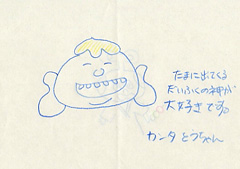 たまに出てくる
だいふくの神が
大好きです。
カンタ とうちゃん